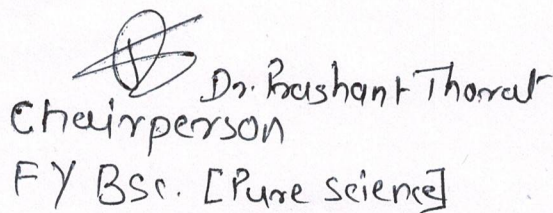 Dr. Prashant Thorat
Chairperson
FY BSc. [Pure science]